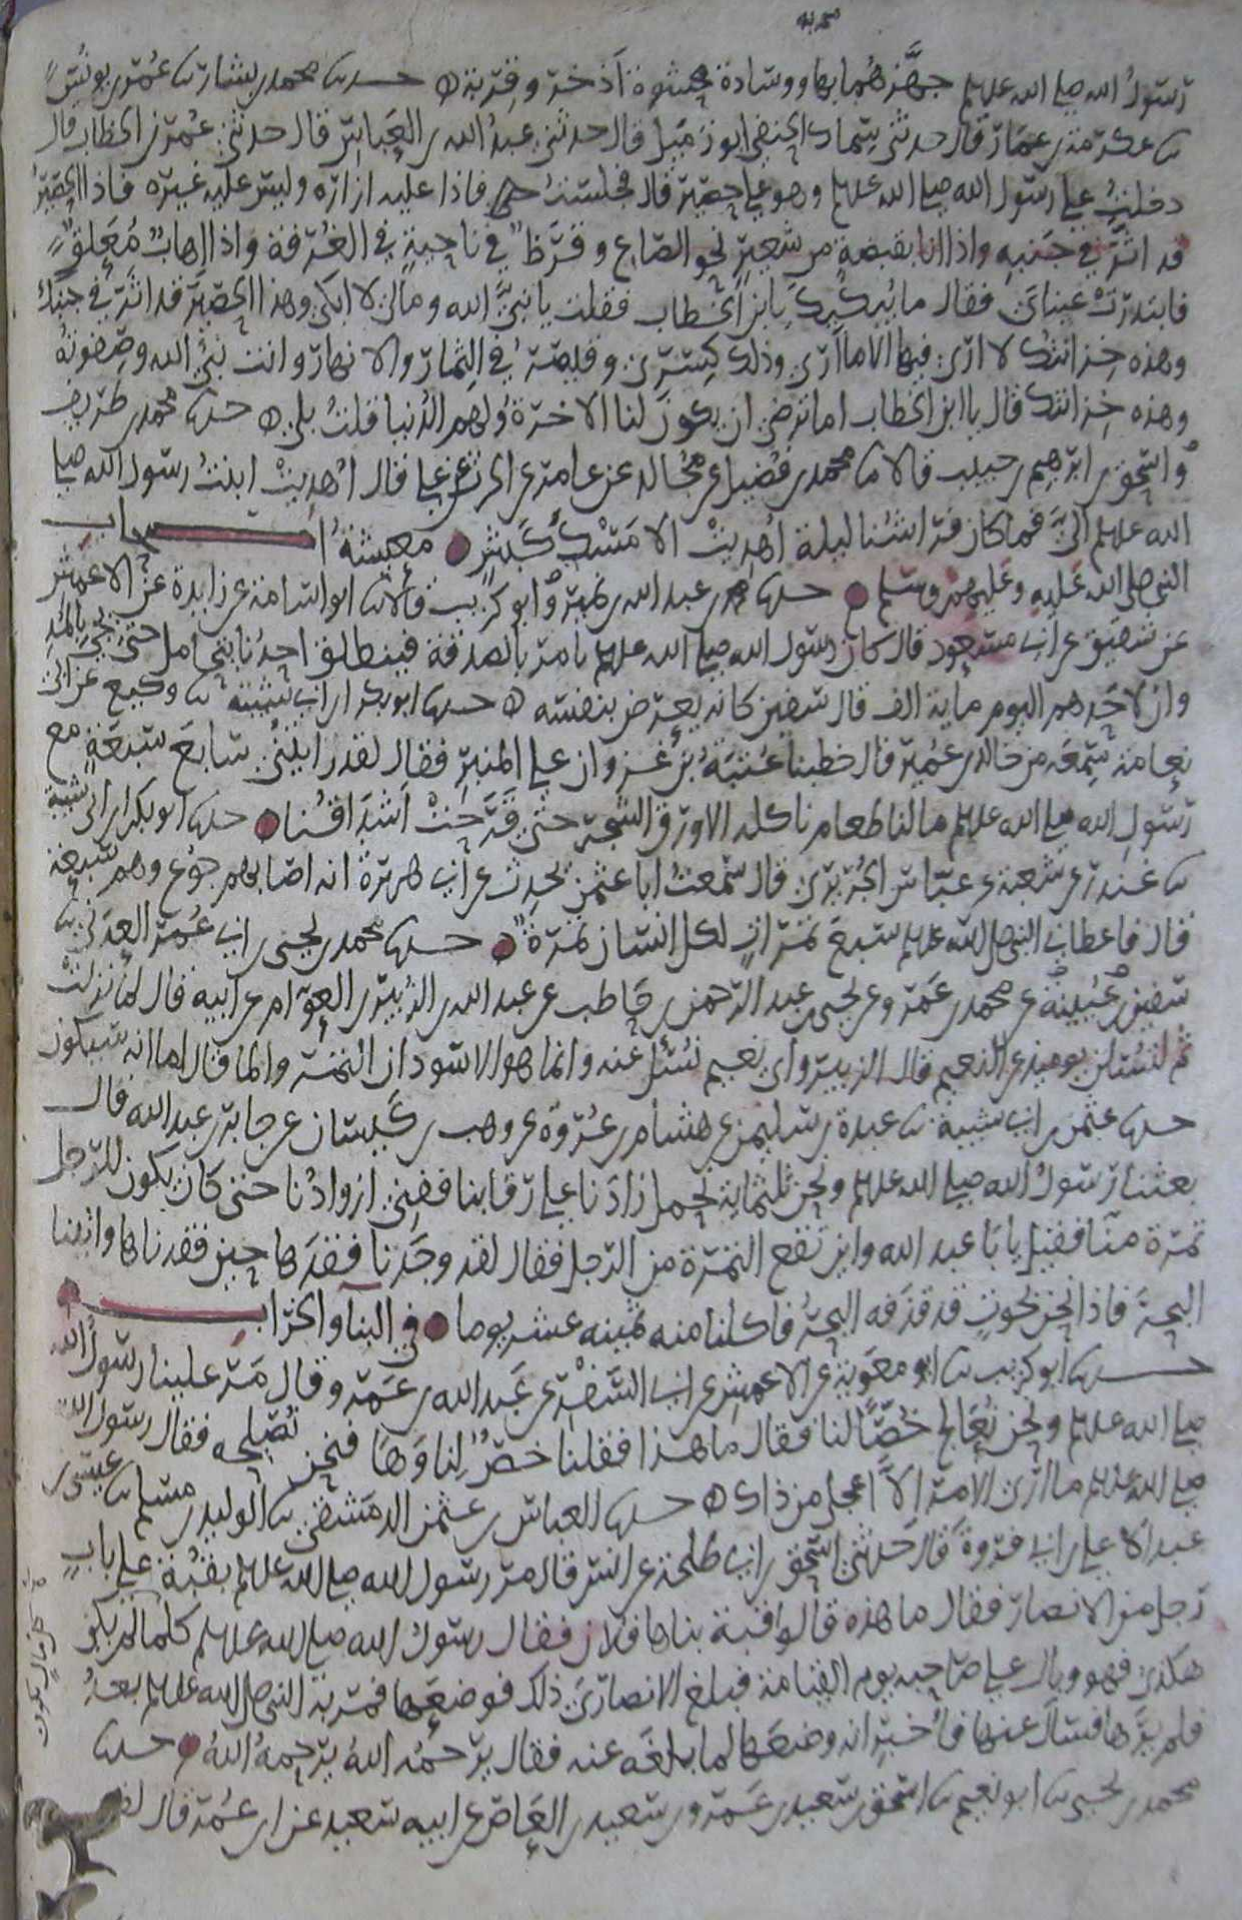 رسول الله صلى الله علىه جهزهما بها ووسادة محشوة اذخر وقربة ه حدىنا محمد بن بشار ىنا عمر بن يونس
ىنا عكرمة بن عمار قال حدثنى سماك الحنفى ابو زميل قال حدثنى عبد الله بن العباس قال حدثنى عمر بن الخطاب قال
دخلت على رسول الله صلى الله علىه وهو على حصير قال فجلست فاذا عليه ازاره وليس عليه غيره فاذا الحصير
قد اثر فى جنبه واذا انا بقبضة من شعير نحو الصاع وقرظ فى ناحية فى الغرفة واذا اهاب معلق
فابتدرت عيناى فقال ما يبكيك يا بن الخطاب فقلت يا نبى الله ومالى لا ابكى وهذا الحصير قد اثر فى جنبك
وهذه خزانتك لا ارى فيها الا ما ارى وذلك كسرى وقيصر فى الثمار والانهار وانت نبى الله وصفوته
وهذه خزانتك قال يا ابن الخطاب اما ترضى ان يكون لنا الاخرة ولهم الدنيا قلت بلى ه حدىنا محمد بن طريف
واسحق بن ابرهيم بن حبيب قالا ىنا محمد بن فضيل عن مجالد عن عامر عن الحرث عن على قال اهديت ابنت رسول الله صلى
الله علىه الى فما كان فراشنا ليلة اهديت الا مسك كبش معيشة ا باب
النبى صلى الله عليه وعليهم وسلم حدىنا محمد بن عبد الله بن نمير وابو كريب قالا ىنا ابو اسامة عن زايدة عن الاعمش
عن شقيق عن ابى مسعود قال كان رسول الله صلى الله علىه يامر بالصدقة فينطلق احدنا يتحامل حتى يجى بالمد
وان لاحدهم اليوم ماية الف قال شقيق كانه يعرض بنفسه ه حدىنا ابو بكر ابن ابى شيبة ىنا وكيع عن ابى
نعامة سمعه من خالد بن عمير قال خطبنا عتبة بن غزوان على المنبر فقال لقد رايتنى سابع سبعة مع
رسول الله صلى الله علىه ما لنا طعام ناكله الا ورق الشجر حتى قرحت اشداقنا حدىنا ابو بكر ابن ابى شيبة
ىنا غندر عن شعبة عن عباس الجريرى قال سمعت ابا عثمن يحدث عن ابى هريرة انه اصابهم جوع وهم سبعة
قال فاعطانى النبى صلى الله علىه سبع تمرات لكل انسان تمرة حدىنا محمد بن يحيى بن ابى عمر العدنى ىنا
سفين بن عيينة عن محمد بن عمر وعن يحيى بن عبد الرحمن بن حاطب عن عبد الله بن الزبير بن العوام عن ابيه قال لما نزلت
ثم لتسئلن يوميذ عن النعيم قال الزبير واى نعيم نسئل عنه وانما هو الاسودان التمر والما قال اما انه سيكون
حدىنا عثمن بن ابى شيبة ىنا عبدة بن سليمن عن هشام بن عروة عن وهب بن كيسان عن جابر بن عبد الله قال
بعثنا رسول الله صلى الله علىه ونحن ثلثماية نحمل ازادنا على رقابنا ففنى ازوادنا حتى كان يكون للرجل
تمرة منا فقيل يا با عبد الله واين تقع التمرة من الرجل فقال لقد وجدنا فقدها حين فقدناها واتينا
البحر فاذا نحن بحوت قد قذفه البحر فاكلنا منه ثمنيه عشر يوما فى البنا والخراب
حدىنا ابو كريب ىنا ابو معوية عن الاعمش عن ابى السفر عن عبد الله بن عمرو قال مر علينا رسول الله
صلى الله علىه ونحن نعالج خصا لنا فقال ما هذا فقلنا خص لنا وها فنحن نصلحه فقال رسول الله
صلى الله علىه ما ارى الامر الا اعجل من ذاك ه حدىنا العباس بن عثمن الدمشقى ىنا الوليد بن مسلم ىنا عيسى بن
عبد الاعلى بن ابى فروة قال حدثنى اسحق بن ابى طلحة عن انس قال مر رسول الله صلى الله علىه بقبة على باب
رجل من الانصار فقال ما هذه قالوا قبة بناها فلان فقال رسول الله صلى الله علىه كلما لم يكن
هكذى فهو وبال على صاحبه يوم القيامة فبلغ الانصارى ذلك فوضعها فمر به النبى صلى الله علىه بعد
فلم يرها فسال عنها فاخبر انه وضعها لما بلغه عنه فقال يرحمه الله يرحمه الله حدىنا
محمد بن يحيى ىنا ابو نعيم ىنا اسحق بن سعيد بن عمرو بن سعيد بن العاص عن ابيه سعيد عن ابن عمر قال لقد